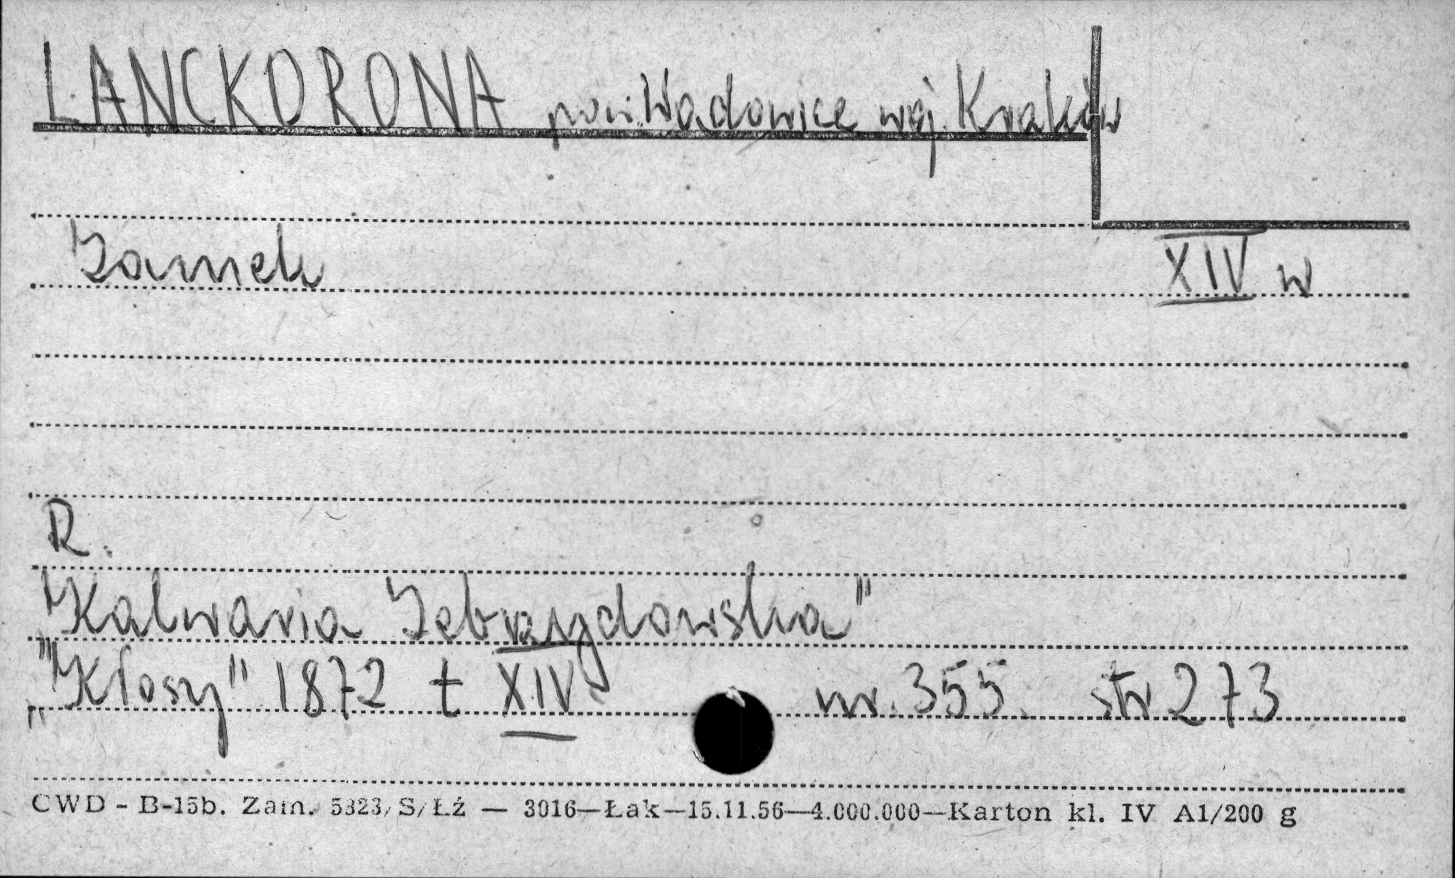 LANCKORONA pow. Wadowice woj. Kraków
Zamek XIV w
R.
"Kalwaria Zebrzydowska"
"Kłosy" 1872 t XIV nr. 355 str 273
CWD - B-15b. Zam. 5323/S/Łź — 3016—Łak—15.11.56—4.000.000—Karton kl. IV A1/200 g